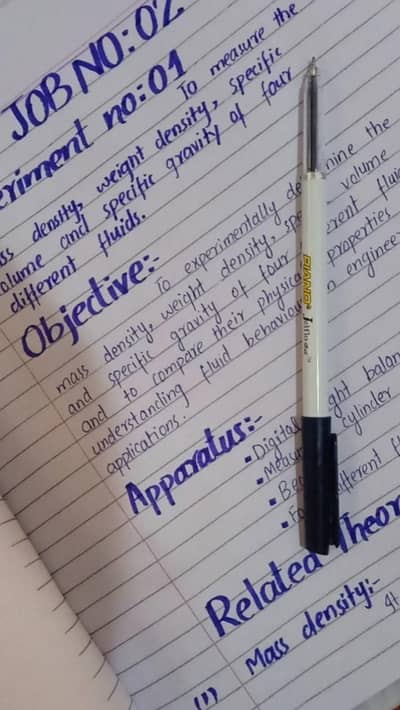 JOB NO:02
eriment no:01
To measure the
ss density, weight density, specific
olume and specific gravity of four
different fluids.
Objective:-
To experimentally de ine the
mass density, weight density, spe volume
and specific gravity of four erent flui
and to compare their physica properties
understanding fluid behaviou n engineer
applications.
Apparatus:-
• Digital ght balan
• Measu cylinder
• Be
• Fo different f
Related Theor
(1) Mass density:-
PIANO